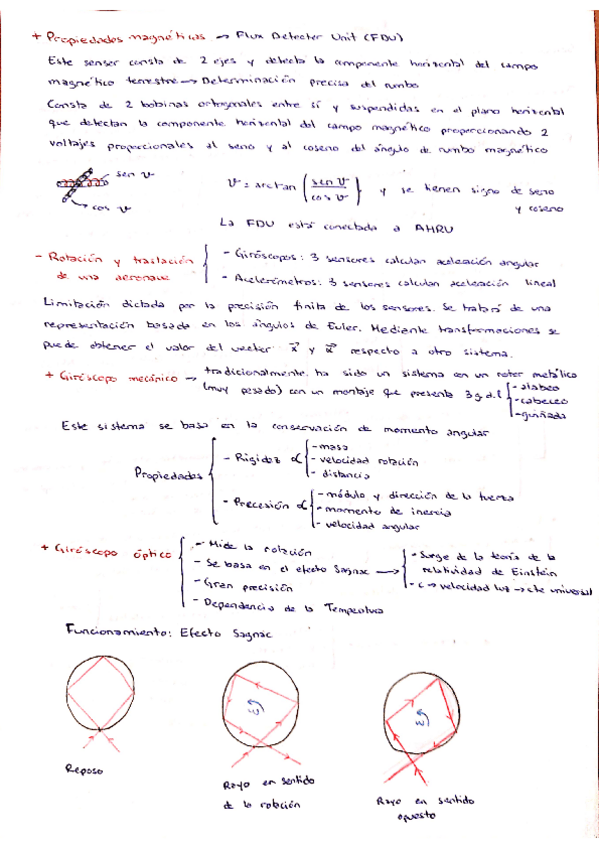 + Propiedades magnéticas → Flux Detecter Unit (FDU)
Este sensor consta de 2 ejes y detecta la componente horizontal del campo
magnético terrestre → Determinación precisa del rumbo
Consta de 2 bobinas ortogonales entre sí y suspendidas en el plano horizontal
que detectan la componente horizontal del campo magnético proporcionando 2
voltajes proporcionales al seno y al coseno del ángulo de rumbo magnético
sen v
cos v
v = arctan (sen v / cos v) y se tienen signo de seno
y coseno
La FDU está conectada a AHRU
- Rotación y traslación
de una aeronave
- Giróscopos: 3 sensores calculan aceleración angular
- Acelerómetros: 3 sensores calculan aceleración lineal
Limitación dictada por la precisión finita de los sensores. Se tratará de una
representación basada en los ángulos de Euler. Mediante transformaciones se
puede obtener el valor del vector x y respecto a otro sistema.
+ Giróscopo mecánico → tradicionalmente ha sido un sistema con un rotor metálico
(muy pesado) con un montaje que presenta 3 g.d.l
- alabeo
- cabeceo
- guiñada
Este sistema se basa en la conservación de momento angular
Propiedades
- Rigidez ∝
- masa
- velocidad rotación
- distancia
- Precesión ∝
- módulo y dirección de la fuerza
- momento de inercia
- velocidad angular
+ Giróscopo óptico
- Mide la rotación
- Se basa en el efecto Sagnac →
- Gran precisión
- Dependencia de la Temperatura
- Surge de la teoría de la
relatividad de Einstein
- c → velocidad luz → cte universal
Funcionamiento: Efecto Sagnac
ω
ω
Reposo
Rayo en sentido
de la rotación
Rayo en sentido
opuesto